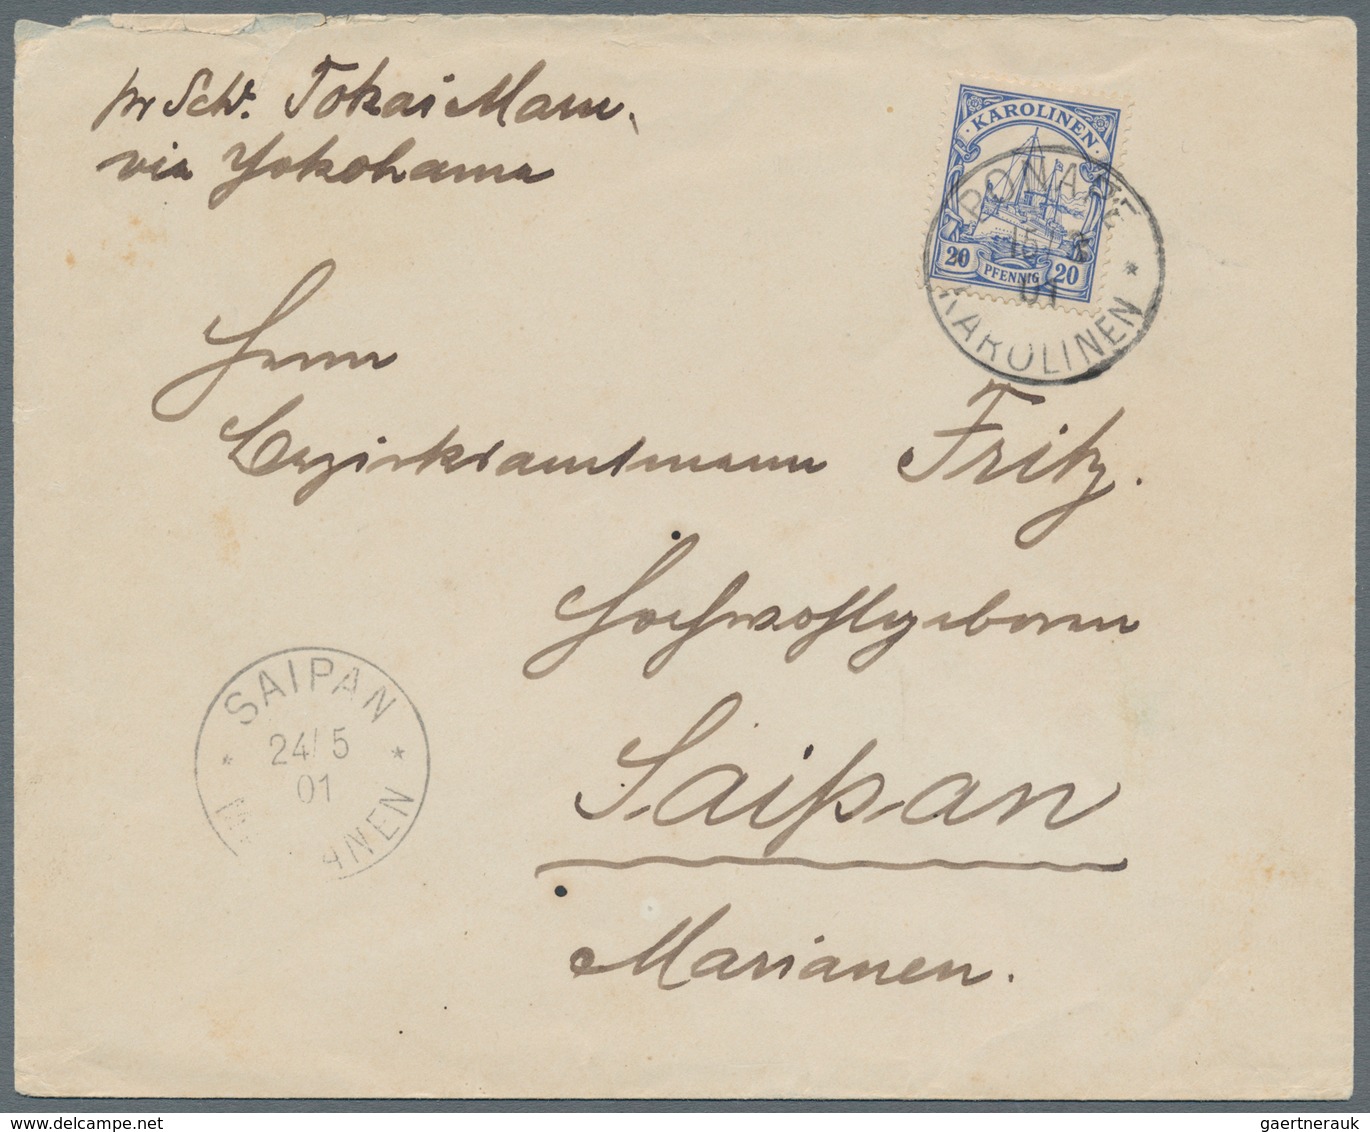 pr Sch. Tokai Maru.
via Yokohama
KAROLINEN
20 PFENNIG 20
PONAPE
15
01
KAROLINEN *
Herrn
Bezirksamtmann Fritz.
Hochwohlgeboren
Saipan
Marianen.
* SAIPAN *
24/5
01
www.delcampe.net
gaertnerauk